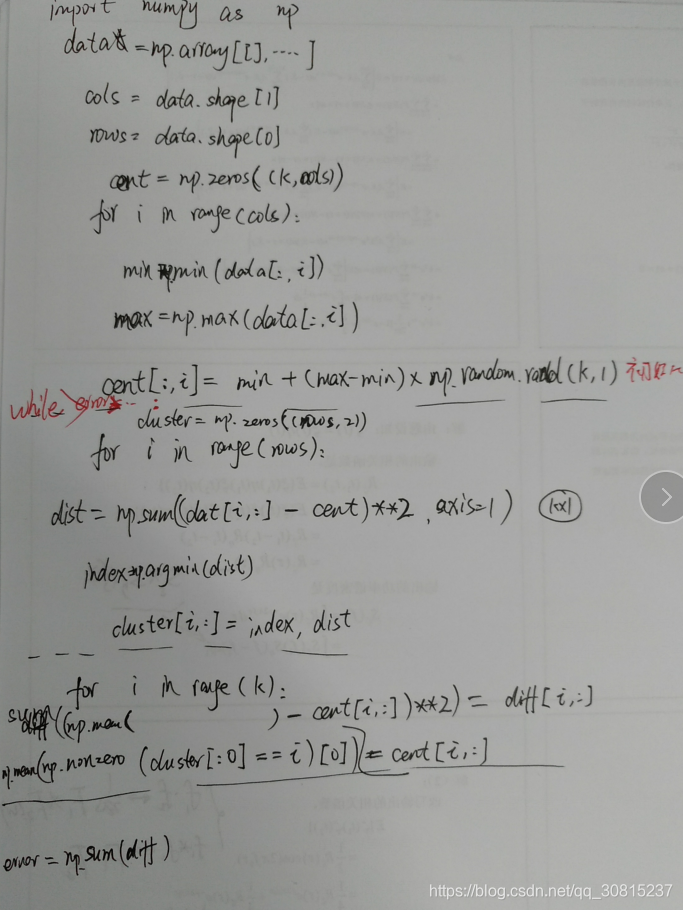 import numpy as np
data = np.array[[],....]
cols = data.shape[1]
rows = data.shape[0]
cent = np.zeros((k,cols))
for i in range(cols):
min np.min(data[:,i])
max = np.max(data[:,i])
cent[:,i] = min + (max-min) × np.random.rand(k,1) 初始化
while error ...
cluster = np.zeros((rows,2))
for i in range(rows):
dist = np.sum((dat[i,:] - cent)**2, axis=1) (k×1)
index=np.argmin(dist)
cluster[i,:] = index, dist
for i in range(k):
sum((np.mean( ) - cent[i,:])**2) = diff[i,:]
np.mean(np.nonzero (cluster[:0] == i)[0]) = cent[i,:]
error = np.sum(diff)
https://blog.csdn.net/qq_30815237